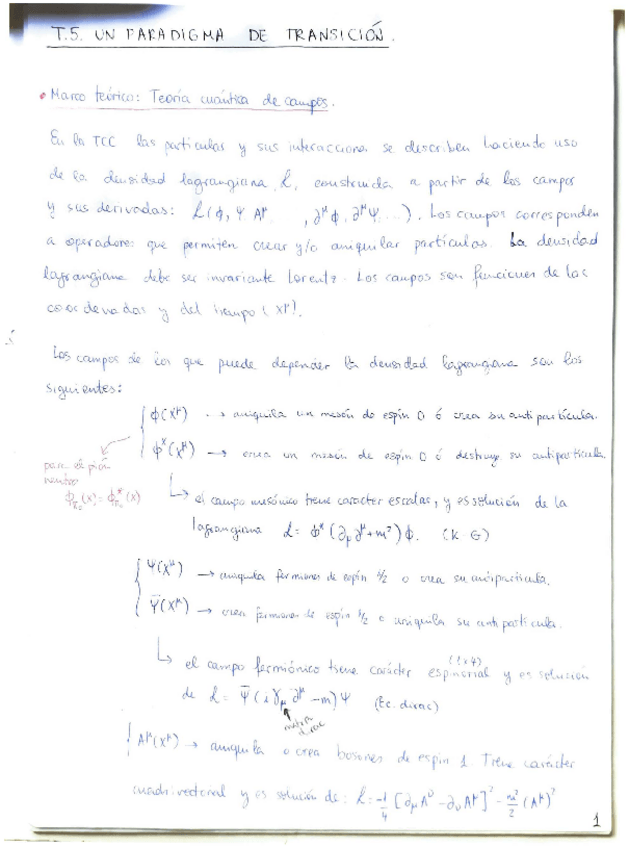 T.5. UN PARADIGMA DE TRANSICIÓN.
• Marco teórico: Teoría cuántica de campos.
En la TCC las partículas y sus interacciones se describen haciendo uso
de la densidad lagrangiana, L, construida a partir de los campos
y sus derivadas: L(ϕ, Ψ A^μ , ∂^μ ϕ, ∂^μ Ψ ...). Los campos corresponden
a operadores que permiten crear y/o aniquilar partículas. La densidad
lagrangiana debe ser invariante Lorentz. Los campos son funciones de las
coordenadas y del tiempo (x^μ).
Los campos de los que puede depender la densidad lagrangiana son los
siguientes:
ϕ(x^μ) → aniquila un mesón de espín 0 ó crea su antipartícula.
ϕ*(x^μ) → crea un mesón de espín 0 ó destruye su antipartícula.
para el pión
neutro
ϕ_π₀(x) = ϕ*_π₀(x)
↳ el campo mesónico tiene carácter escalar, y es solución de la
lagrangiana L = ϕ*(∂_μ ∂^μ + m²)ϕ. (K G)
Ψ(x^μ) → aniquila fermiones de espín 1/2 o crea su antipartícula.
Ψ̄(x^μ) → crea fermiones de espín 1/2 o aniquila su antipartícula.
↳ el campo fermiónico tiene carácter espinorial y es solución
de L = Ψ̄(iγ_μ ∂^μ - m)Ψ (Ec. dirac)
matriz
dirac
A^μ(x^μ) → aniquila o crea bosones de espín 1. Tiene carácter
cuadrivectorial y es solución de: L = -1/4 [∂_μ A^ν - ∂_ν A^μ]² - m²/2 (A^μ)²
1